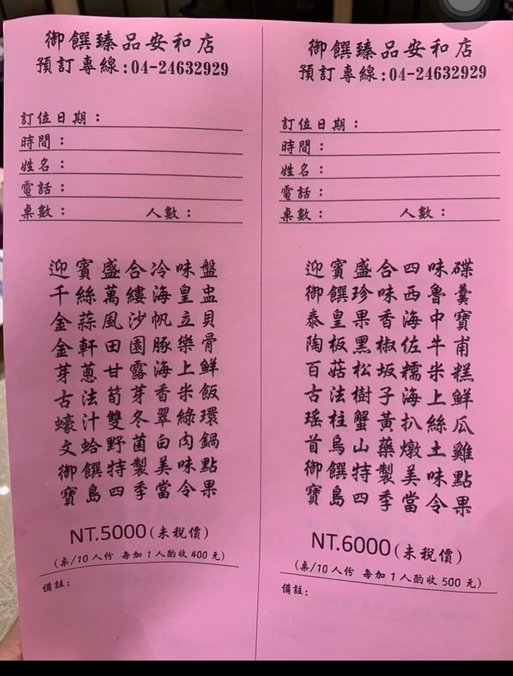 御饌臻品安和店
預訂專線:04-24632929
訂位日期：
時間：
姓名：
電話：
桌數：　　　人數：
迎賓盛合冷味盤
千絲萬縷海皇盅
金蒜風沙帆立貝
金軒田園豚樂骨
芽蔥甘露海上鮮
古法筍芽香米飯
蠔汁雙冬翠綠環
文蛤野菌白肉鍋
御饌特製美味點
寶島四季當令果
NT.5000(未稅價)
(桌/10人份 每加1人酌收400元)
備註:
御饌臻品安和店
預訂專線:04-24632929
訂位日期：
時間：
姓名：
電話：
桌數：　　　人數：
迎賓盛合四味碟
御饌珍味西魯羹
泰皇果香海中寶
陶板黑椒佐牛甫
百菇松坂糯米糕
古法樹子海上鮮
瑤柱蟹黃扒絲瓜
首烏山藥燉土雞
御饌特製美味點
寶島四季當令果
NT.6000(未稅價)
(桌/10人份 每加1人酌收500元)
備註: